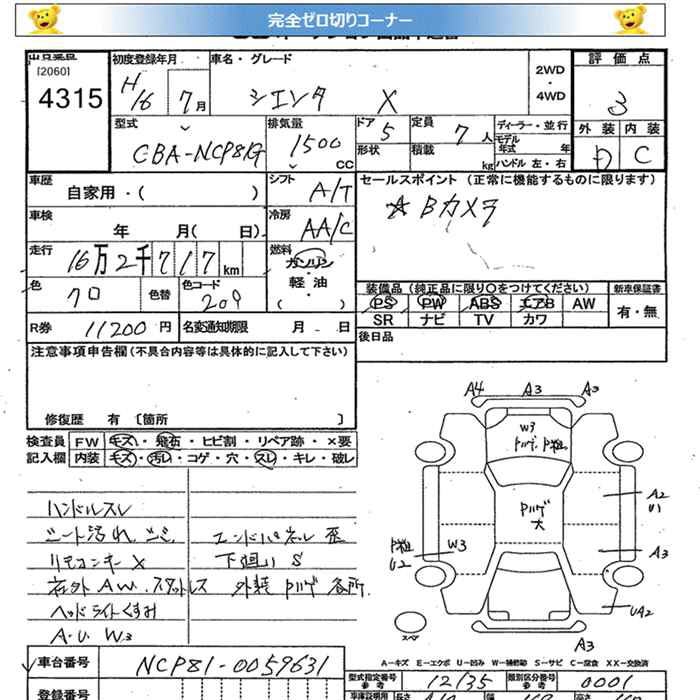 完全ゼロ切りコーナー
出品票
[2060]
4315
初度登録年月
H16 7月
車名・グレード
シエンタ X
2WD・4WD
評価点
3
外装 内装
D C
型式
CBA-NCP81G
排気量
1500 CC
ドア 5
形状
定員 7人
積載 kg
ディーラー・並行
モデル年式 年
ハンドル 左・右
車歴
自家用・( )
シフト A/T
セールスポイント (正常に機能するものに限ります)
☆Bカメラ
車検 年 月( 日)
冷房 AA/C
走行 16万2千717km
燃料 ガソリン・軽油
( )
色 クロ 色替
色コード 209
装備品(純正品に限り○をつけてください)
新車保証書
有・無
PS PW ABS エアB AW
SR ナビ TV カワ
R券 11200円
名変通知期限 月 日
後日品
注意事項申告欄(不具合内容等は具体的に記入して下さい)
修復歴 有〔箇所 〕
検査員記入欄
FW キズ・飛石・ヒビ割・リペア跡・×要
内装 キズ・汚レ・コゲ・穴・スレ・キレ・破レ
ハンドルスレ
シート汚れ シミ エンドパネル歪
リモコンキーX 下廻りS
社外AW.スタットレス 外装Pハゲ各所
ヘッドライトくすみ
A・U W3
A4 A3
W3
Pハゲ
大
A2
U1
W3
U2
A3
UA2
スペア
A3
A-キズ E-エクボ U-凹み W-補修跡 S-サビ C-腐食 XX-交換済
車台番号
NCP81-0059631
型式指定番号
参考
12135
類別区分番号
参考
0001
登録番号
長さ 幅 高さ